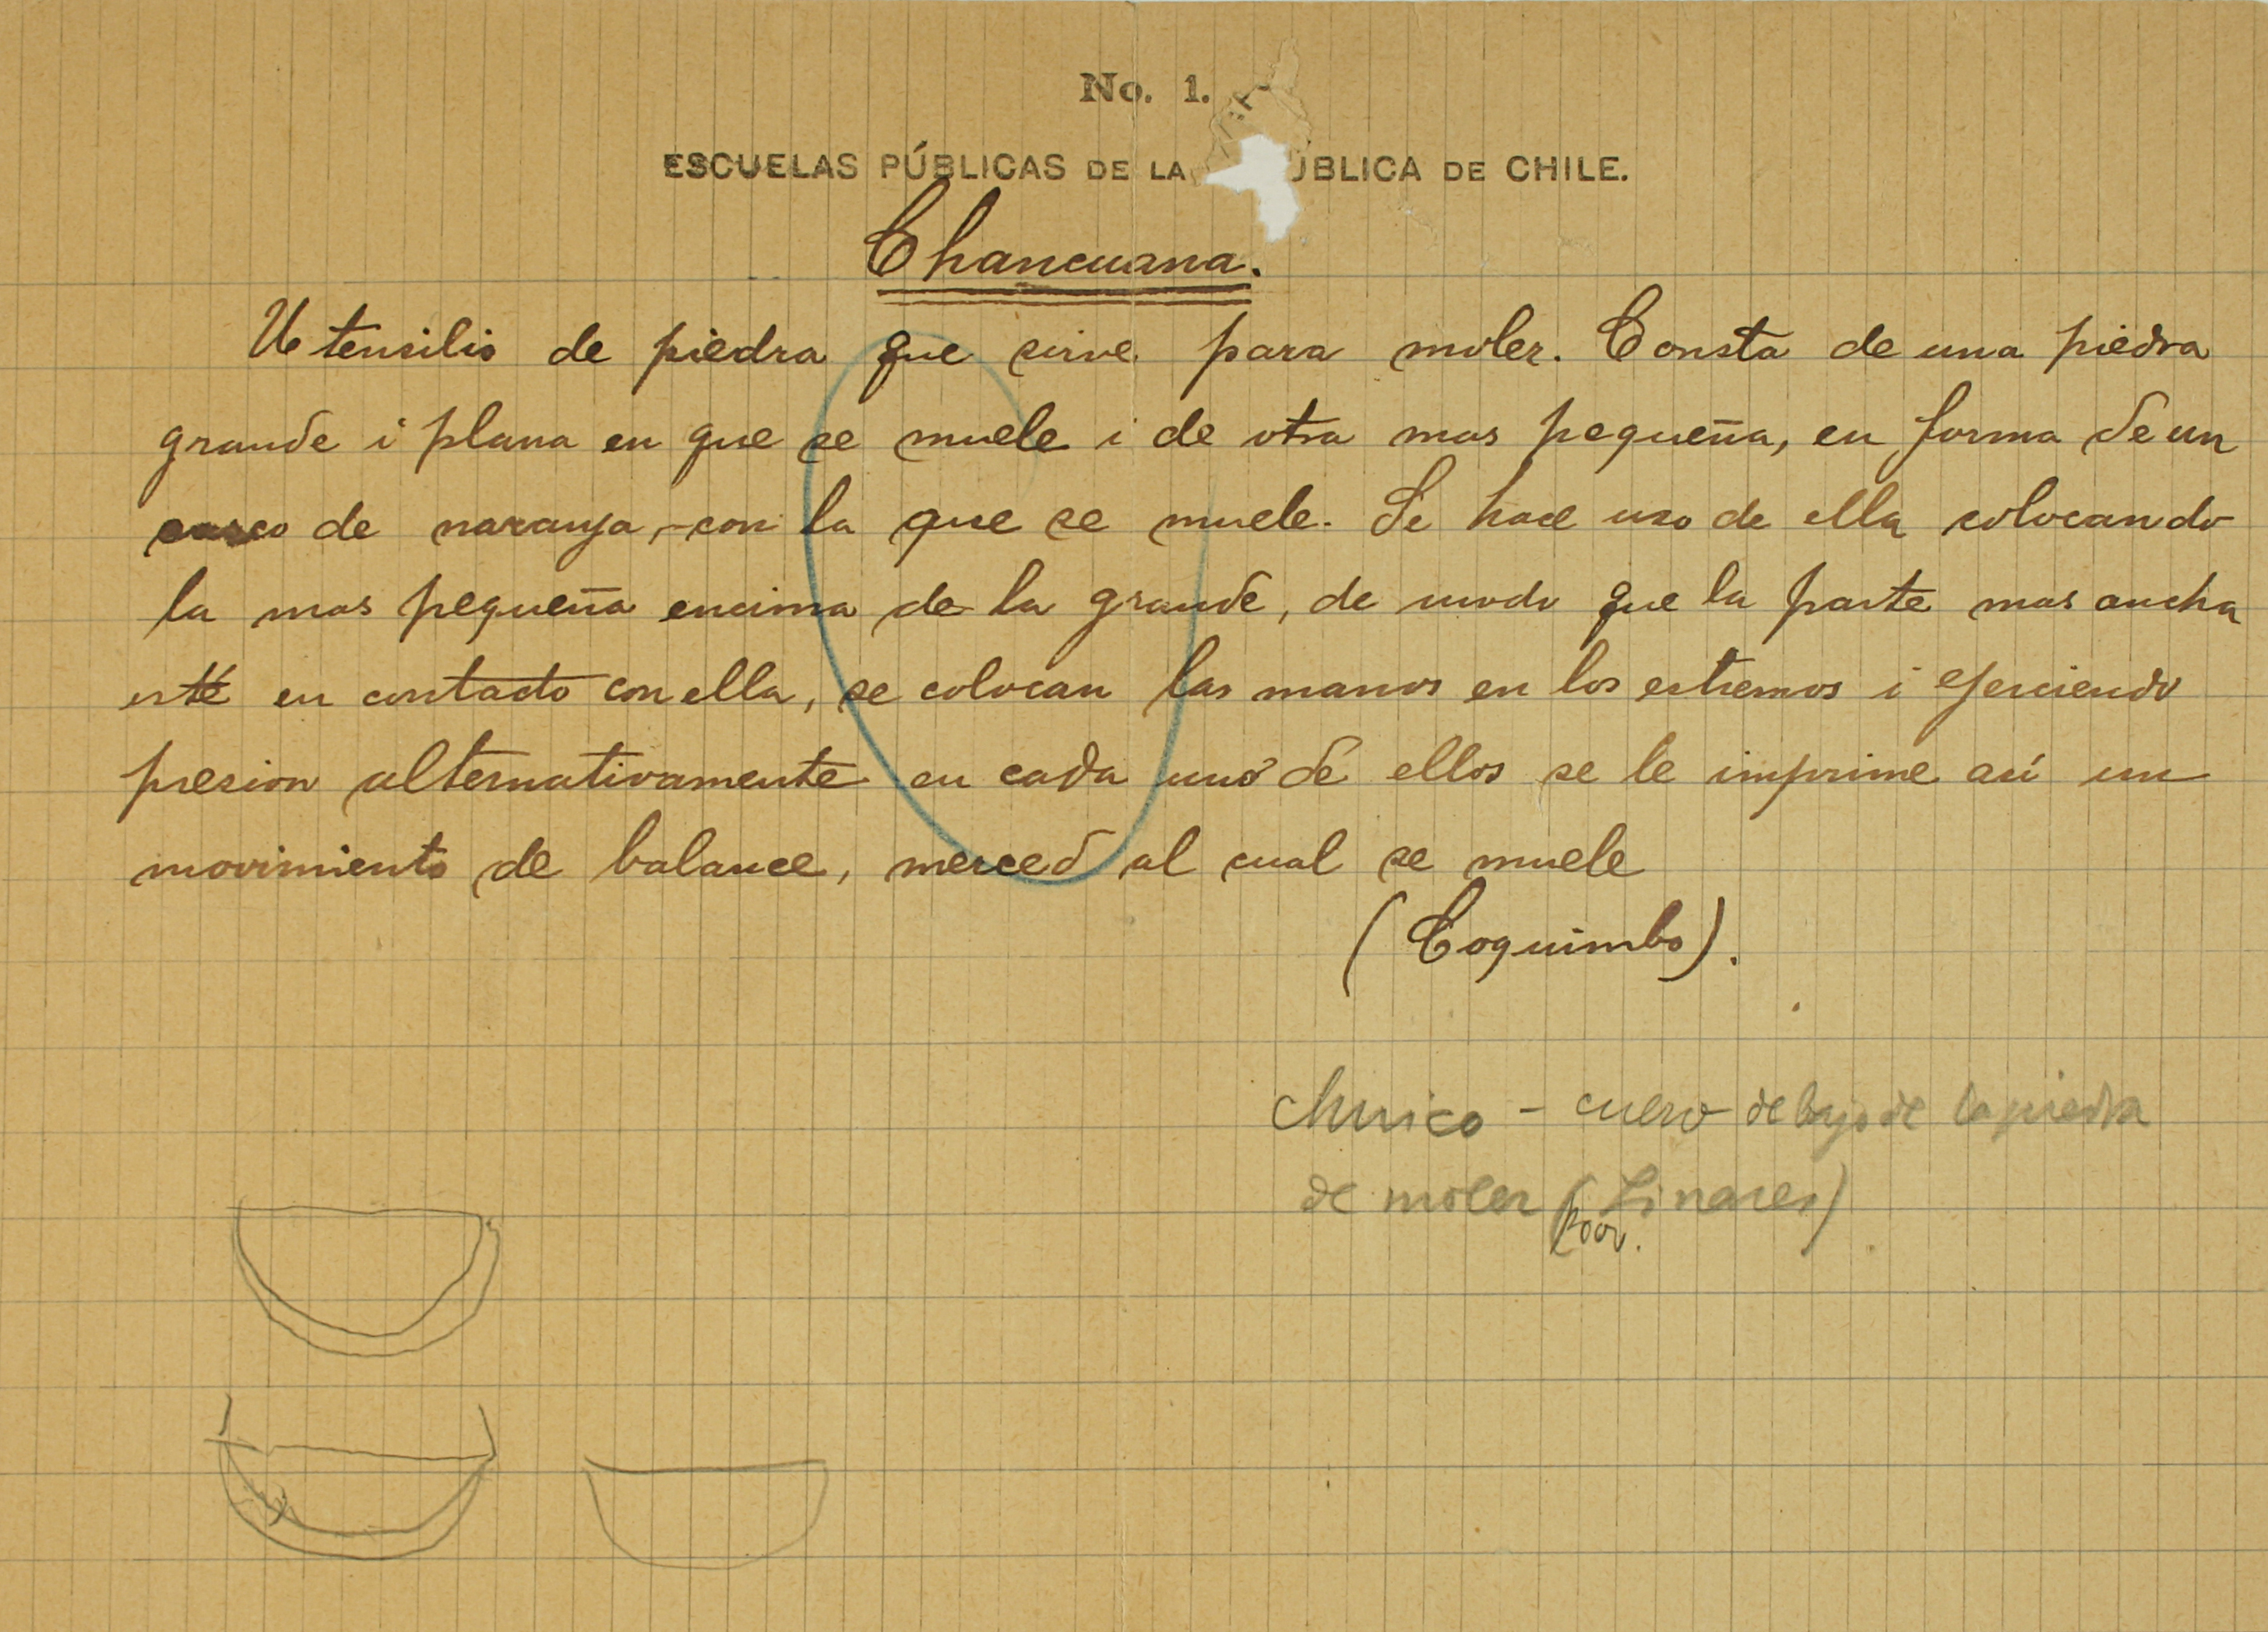 No. 1.
ESCUELAS PÚBLICAS DE LA ÚBLICA DE CHILE.
Chancuana.
Utensilio de piedra que sirve para moler. Consta de una piedra
grande i plana en que se muele i de otra mas pequeña, en forma de un
casco de naranja, con la que se muele. Se hace uso de ella colocando
la mas pequeña encima de la grande, de modo que la parte mas ancha
esté en contacto con ella, se colocan las manos en los estremos i ejerciendo
presion alternativamente en cada uno de ellos se le imprime así un
movimiento de balance, merced al cual se muele
(Coquimbo).
chuico - cuero debajo de la piedra
de moler (Linares)